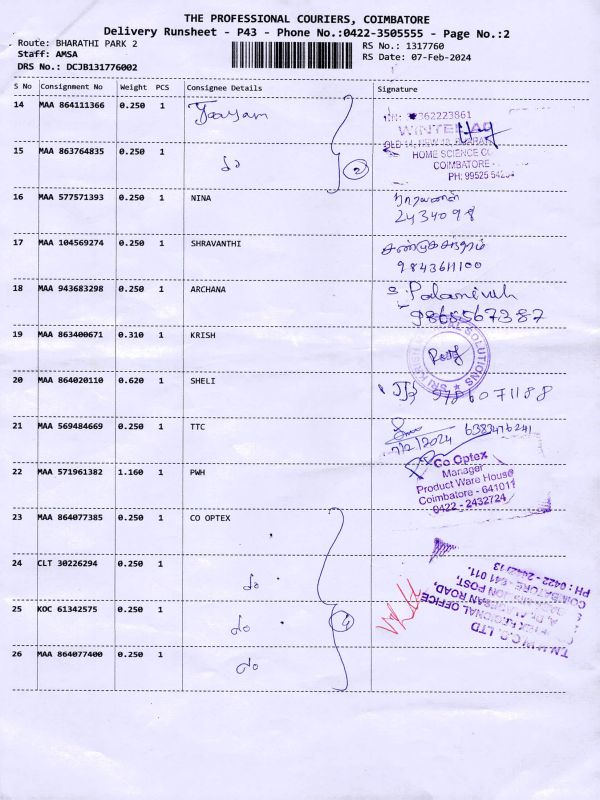 THE PROFESSIONAL COURIERS, COIMBATORE
Delivery Runsheet - P43 - Phone No.:0422-3505555 - Page No.:2
Route: BHARATHI PARK 2
Staff: AMSA
DRS No.: DCJB131776002
RS No.: 1317760
RS Date: 07-Feb-2024
S No Consignment No Weight PCS Consignee Details Signature
14 MAA 864111366 0.250 1
362223861
HOME SCIENCE CO
COIMBATORE -
PH: 99525
15 MAA 863764835 0.250 1 do 2
16 MAA 577571393 0.250 1 NINA
நாராயணன்
2434098
17 MAA 104569274 0.250 1 SHRAVANTHI
சண்முகசுந்தரம்
9843611100
18 MAA 943683298 0.250 1 ARCHANA
9865567387
19 MAA 863400671 0.310 1 KRISH
SOLUTIONS
SRI
20 MAA 864020110 0.620 1 SHELI
9786071188
21 MAA 569484669 0.250 1 TTC
6383476241
7/2/2024
22 MAA 571961382 1.160 1 PWH
Co Optex
Manager
Product Ware House
Coimbatore - 641011
0422 - 2432724
23 MAA 864077385 0.250 1 CO OPTEX
24 CLT 30226294 0.250 1 do
25 KOC 61342575 0.250 1 do 4
26 MAA 864077400 0.250 1 do
REGIONAL OFFICE